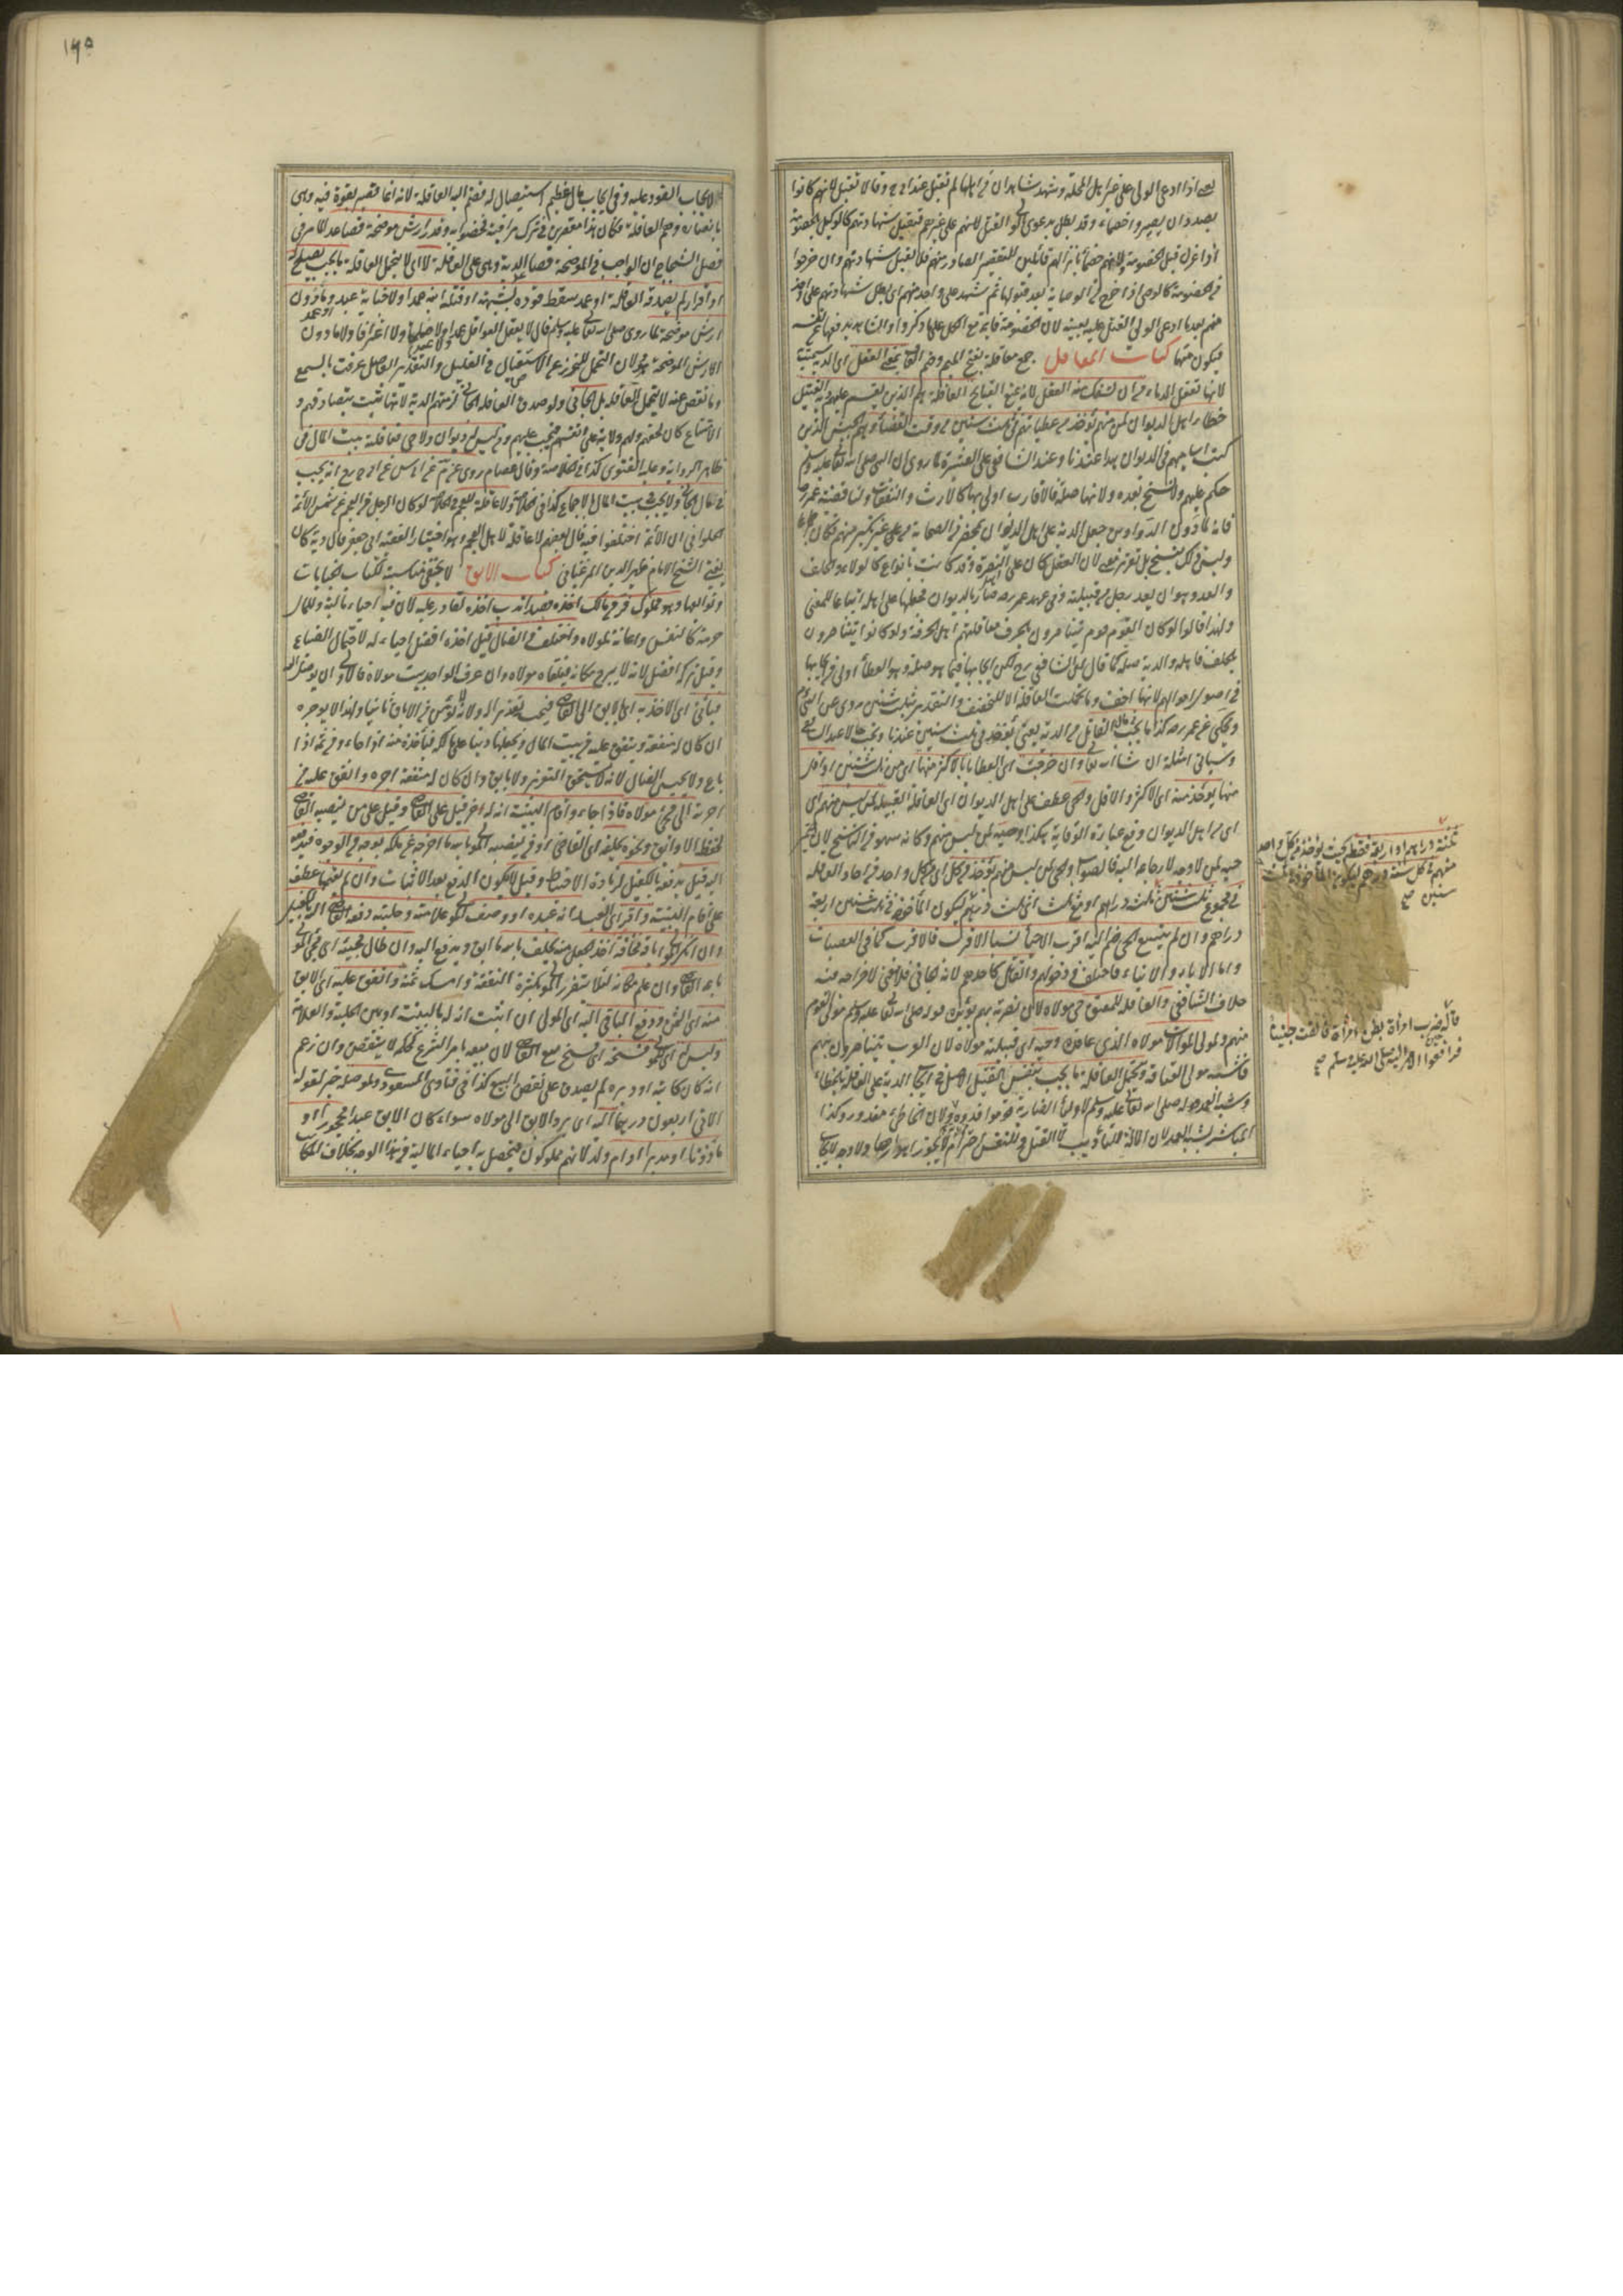 بعض اذا ادعى الولى على غير اهل المحلة وشهد شاهدان من اهلها لم تقبل عند ابى ح وقالا تقبل لانهم كانوا
بصدد ان يصيروا خصماء وقد بطل بدعوى الولى القتل لانهم على غيرهم فتقبل شهادتهم كالوكيل بالخصومة
اذا عزل قبل الخصومة وله انهم خصماء بانزالهم قاتلين للتقصير الصادر منهم فلا تقبل شهادتهم وان خرجوا
من الخصومة كالوصى اذا خرج من الوصاية بعد قبولها ثم شهد على واحد منهم اى بطل شهادتهم على واحد
منهم بعد ما ادعى الولى القتل عليه بعينه لان الخصومة قائمة مع الكل على ما ذكروا والشاهد يدفعها عن نفسه
فيكون متهما كتاب المعاقل جمع معقلة بفتح الميم وضم القاف بمعنى العقل اى الدية سميت
لانها تعقل الدماء من ان تسفك ومنه العقل لانه يمنع القبائح العاقلة هم الذين يقسم عليهم دية القتيل
خطأ اهل الديوان لمن هو منهم تؤخذ من عطياتهم فى ثلث سنين من وقت القضاء وهم الجيش الذين
كتبت اساميهم فى الديوان هذا عندنا وعند الشافعى على العشيرة لما روى ان النبى صلى الله تعالى عليه وسلم
حكم عليهم ولا نسخ بعده ولانها صلة فالاقارب اولى بها كالارث والنفقات ولنا قضية عمر رضه
فانه لما دون الدواوين جعل الدية على اهل الديوان بمحضر من الصحابة من غير نكير منهم فكان اجماعا
وليس ذلك بنسخ بل تقرير معنى لان العقل كان على النصرة وقد كانت بانواع كالولاء والحلف
والعد وهو ان يعد رجل من قبيلة وفى عهد عمر رضه صارت بالديوان فجعلها على اهله اتباعا للمعنى
ولهذا قالوا لو كان اليوم قوم يتناصرون بالحرف فعاقلتهم اهل الحرفة ولو كانوا يتناصرون
بالحلف فاهله والدية صلة كما قال الشافعى رح لكن ايجابها فيما هو صلة وهو العطاء اولى من ايجابها
فى اصول اموالهم لانها اخف وما تحملت العاقلة الا للتخفيف والتقدير بثلث سنين مروى عن النبى عم
ويحكى عن عمر رضه كذا ما يجب فى مال القاتل من الدية يعنى تؤخذ فى ثلث سنين عندنا وتجب حالا عند الشافعى
وسياتى امثلة ان شاء الله تعالى وان خرجت اى العطايا بالاكثر منها اى من ثلث سنين او اقل
منها يؤخذ منه اى الاكثر والاقل والحى عطف على اهل الديوان اى العاقلة القبيلة لمن ليس منهم اى
اى من اهل الديوان وقع عبارة الوقاية هكذا وحيه لمن ليس منهم وكانه سهو من الناسخ لان ضمير
حيه لمن لا وجه لارجاعه اليه فالصواب والحى لمن ليس منهم تؤخذ من كل اى من كل واحد من احاد العاقلة
فى مجموع ثلث سنين ثلثة دراهم او مع ثلث اى ثلث درهم ليكون المأخوذ فى ثلث سنين اربعة
دراهم وان لم يتسع الحى ضم اليه اقرب الاحياء نسبا الاقرب فالاقرب كما فى العصبات
واما الاباء والابناء فاختلف فى دخولهم والقاتل كاحدهم لانه الجانى فلا معنى لاخراجه فيه
خلاف الشافعى والعاقلة للمعتق حى مولاه لان نصرته بهم يؤيده قوله صلى الله تعالى عليه وسلم مولى القوم
منهم ولمولى الموالاة مولاه الذى عاقده وحيه اى قبيلة مولاه لان العرب تتناصرون بهم
فاشبه مولى العتاقة وتحمل العاقلة ما يجب بنفس القتل الاصل فى ايجاب الدية على العاقلة بالخطاء
وشبه العمد قوله صلى الله تعالى عليه وسلم لاولياء الضاربة قوموا فدوه ولان الخاطئ معذور وكذا
المباشر لشبه العمد لان الالة للتأديب لا القتل وللنفس احترام لا يجوز اهدارها ولا وجه لايجاب
ثلثة دراهم او اربعة فقط بحيث يؤخذ من كل واحد
منهم فى كل سنة درهم ليكون المأخوذ فى ثلث
سنين صح
قاله ضرب امرأة بطن امرأة فالقت جنينا
فرافعوا الامر اليه صلى الله عليه وسلم صح
١٦٥
لايجاب القود عليه وفى ايجاب مال عظيم استيصال له فضم اليه العاقلة لانه انما قصر بقوة فيه وهى
بانصاره وهم العاقلة فكان هذا مقصرين فى ترك مراقبته فخصوا به وقدر ارش موضحة فصاعدا لما مر فى
فصل الشجاج ان الواجب فى الموضحة نصف عشر الدية وهى على العاقلة لا اى لا يتحمل العاقلة ما يجب بصلح
او اقرار لم يصدقه العاقلة او عمد سقط قوده بشبهة او قتله ابنه عمدا ولا جناية عبد او عمد وما دون
ارش موضحة لما روى صلى الله تعالى عليه وسلم قال لا يعقل العواقل عمدا ولا عبدا ولا صلحا ولا اعترافا ولا ما دون
ارش الموضحة ولان التحمل للتحرز عن الاستيصال فى القليل والتقدير الفاصل عرفت بالسمع
وما نقص عنه لا يتحمل العاقلة بل الجانى ولو صدق العاقلة الجانى لزمتهم الدية لانها تثبت بتصادقهم و
الامتناع كان لحقهم ولهم ولاية على انفسهم فيجب عليهم ومن ليس له ديوان ولا حى فعاقلته بيت المال فى
ظاهر الرواية وعليه الفتوى كذا فى الخلاصة وقال عصام روى محمد عن ابى س عن ابى ح رح انه يجب
فى مال الجانى ولا يجب فى بيت المال بالاجماع كذا فى المحيط ولا عاقلة للعجم فى المحيط لو كان الرجل من العجم عن شمس الائمة
الحلوانى ان الائمة اختلفوا فيه قال بعضهم لا عاقلة لاهل العجم وهو اختيار الفقيه ابى جعفر قال وبه كان
يفتى الشيخ الامام ظهير الدين المرغينانى كتاب الابق لا يخفى مناسبته لكتاب الجنايات
وتواليها وهو مملوك فر من مالكه اخذه قصدا ندب اخذه لقادر عليه لان فيه احياء ماليته وللمال
حرمة كالنفس واعانة لمولاه واختلف فى الضال قيل اخذه افضل احياء له لاحتمال الضياع
وقيل تركه افضل لانه لا يبرح مكانه فيلقاه مولاه وان عرف الواجد بيت مولاه فالاولى ان يوصله اليه
فيأتى اى الاخذ به اى بالابق الى القاضى فيحبسه تعزيرا له ولانه لا يؤمن من الاباق ثانيا ولهذا لا يوجره
ان كان له منفعة وينفق عليه من بيت المال ويجعلها دينا على مالكه فيأخذه منه اذا جاء ومن ثمنه اذا
باع ولا يحبس الضال لانه لا يستحق التعزير ولا يأبق وان كان له منفعة اجره وانفق عليه من
اجرته الى مجئ مولاه فاذا جاء واقام البينة انه له اخر قيل على القاضى وقيل على من ينصبه القاضى
لحفظ الاوابق ونحوه يحلفه اى القاضى او من ينصبه المولى بالله ما اخرجه عن ملكه بوجه من الوجوه فيدفعه
اليه قيل يدفعه بالكفيل لزيادة الاحتياط وقيل لا يكون الدفع بعد الاثبات وان لم يقمها عطف
على اقام البينة واقر اى العبد انه عبده او وصف المولى علامته وحليته دفعه القاضى اليه بكفيل
وان انكر المولى اباقه مخافة اخذ الجعل منه يحلف بالله ما ابق ويدفع اليه وان طال مجيئه اى مجئ المولى
باعه القاضى وان علم مكانه لئلا يتضرر المولى بكثرة النفقة وامسك ثمنه وانفق عليه اى الابق
منه اى الثمن ودفع الباقى اليه اى المولى ان اثبت انه له بالبينة او بين الحلية والعلامة
وليس له اى المولى فسخه اى فسخ بيع القاضى لان بيعه بامر الشرع كحكمه لا ينتقض وان زعم
انه كان كاتبه او دبره لم يصدق على نقض البيع كذا فى فتاوى المسعودى ولموصله خبر لقوله
الاتى اربعون درهما اليه اى يرد الابق الى مولاه سواء كان الابق عبدا محجورا او
مأذونا او مدبرا او ام ولد لانهم مملوكون فيحصل به احياء المالية من هذا الوجه بخلاف المكاتب